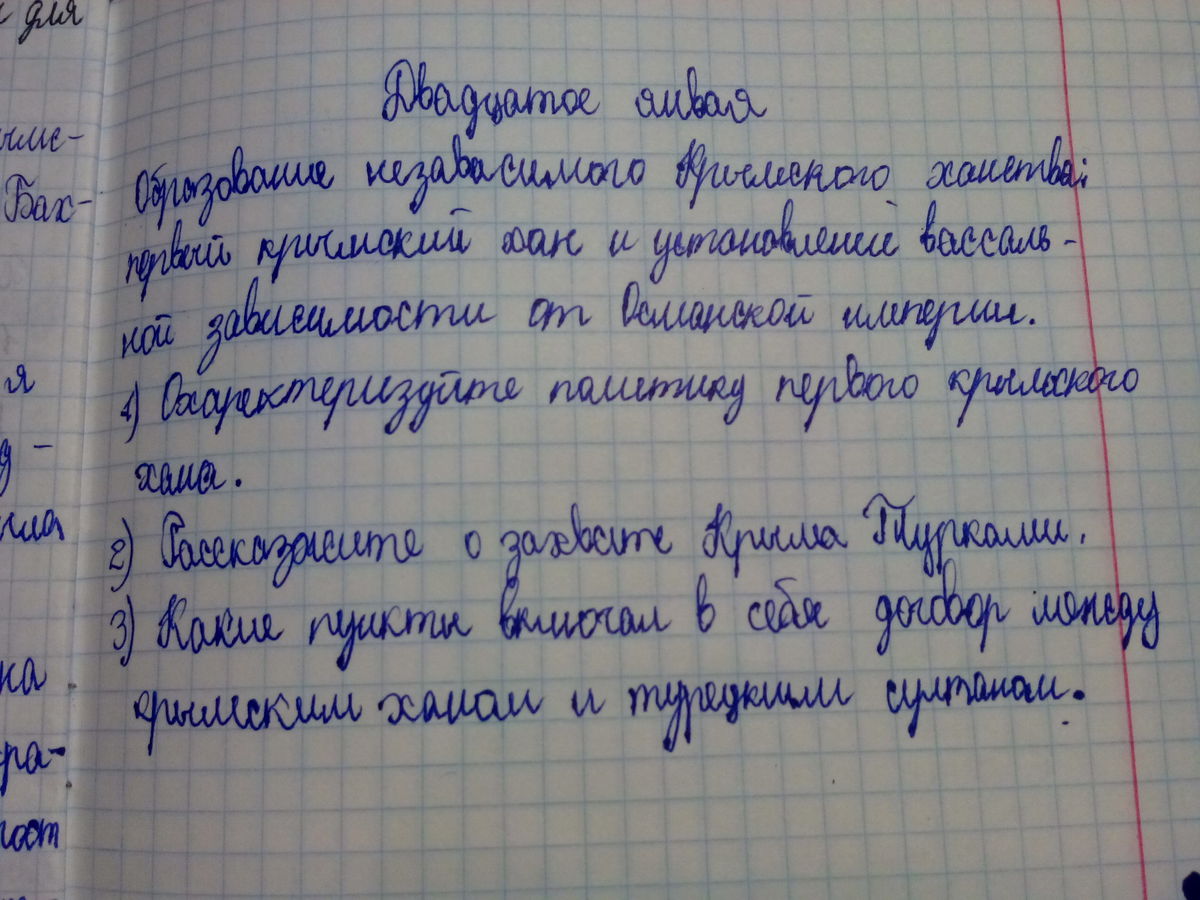 для
Двадцатое января
Бах-
Образование независимого Крымского ханства:
первый крымский хан и установление вассаль-
ной зависимости от Османской империи.
я
1) Охарактеризуйте политику первого крымского
хана.
2) Расскажите о захвате Крыма Турками.
3) Какие пункты включал в себя договор между
на
крымским ханом и турецким султаном.
ра-